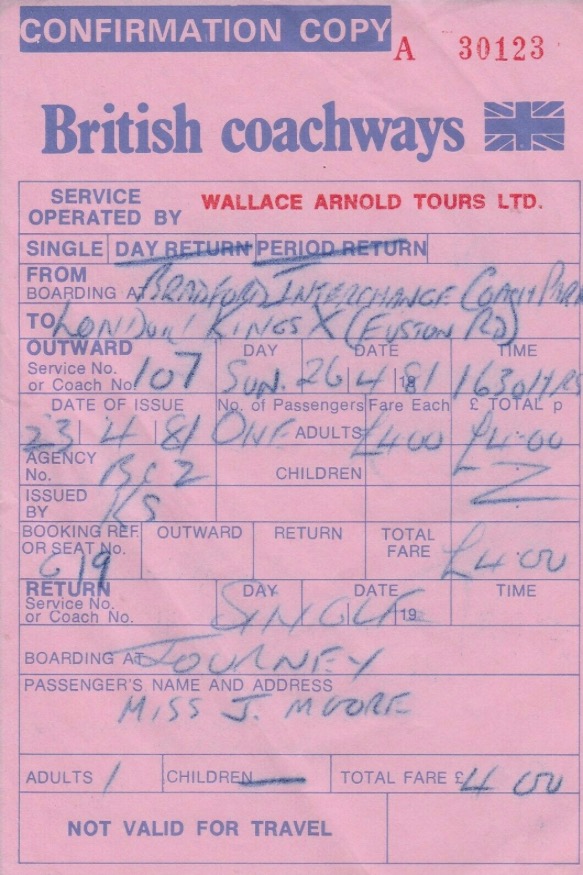 CONFIRMATION COPY
A 30123
British coachways
SERVICE OPERATED BY WALLACE ARNOLD TOURS LTD.
SINGLE DAY RETURN PERIOD RETURN
FROM
BOARDING AT BRADFORD INTERCHANGE COACH PARK
TO LONDON KINGS X (EUSTON RD)
OUTWARD DAY DATE TIME
Service No. or Coach No. 107 SUN. 26 4 81 1630 HRS
DATE OF ISSUE No. of Passengers Fare Each £ TOTAL p
23 4 81 ONE ADULTS £400 £4.00
AGENCY No. BCZ CHILDREN
ISSUED BY KS
BOOKING REF. OR SEAT No. OUTWARD RETURN TOTAL FARE £4.00
G19
RETURN DAY DATE TIME
Service No. or Coach No. SINGLE 19
BOARDING AT JOURNEY
PASSENGER'S NAME AND ADDRESS
MISS J. MOORE
ADULTS 1 CHILDREN — TOTAL FARE £4.00
NOT VALID FOR TRAVEL